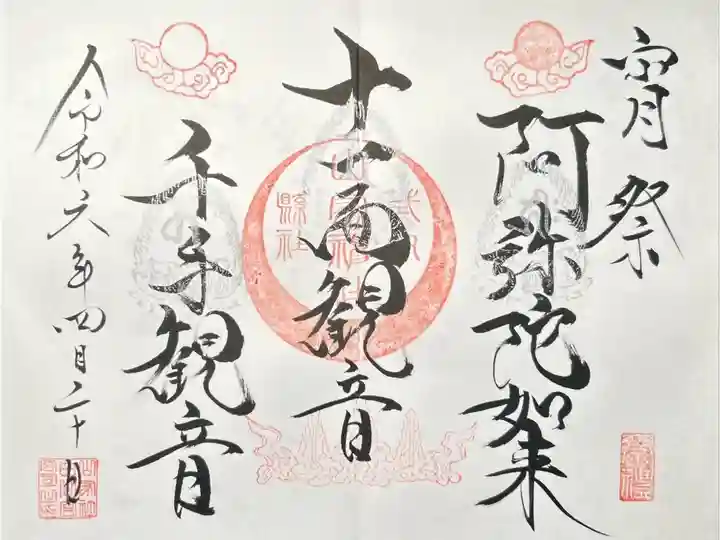 宵月祭
阿弥陀如来
十一面観音
千手観音
令和六年四月二十日
縣社